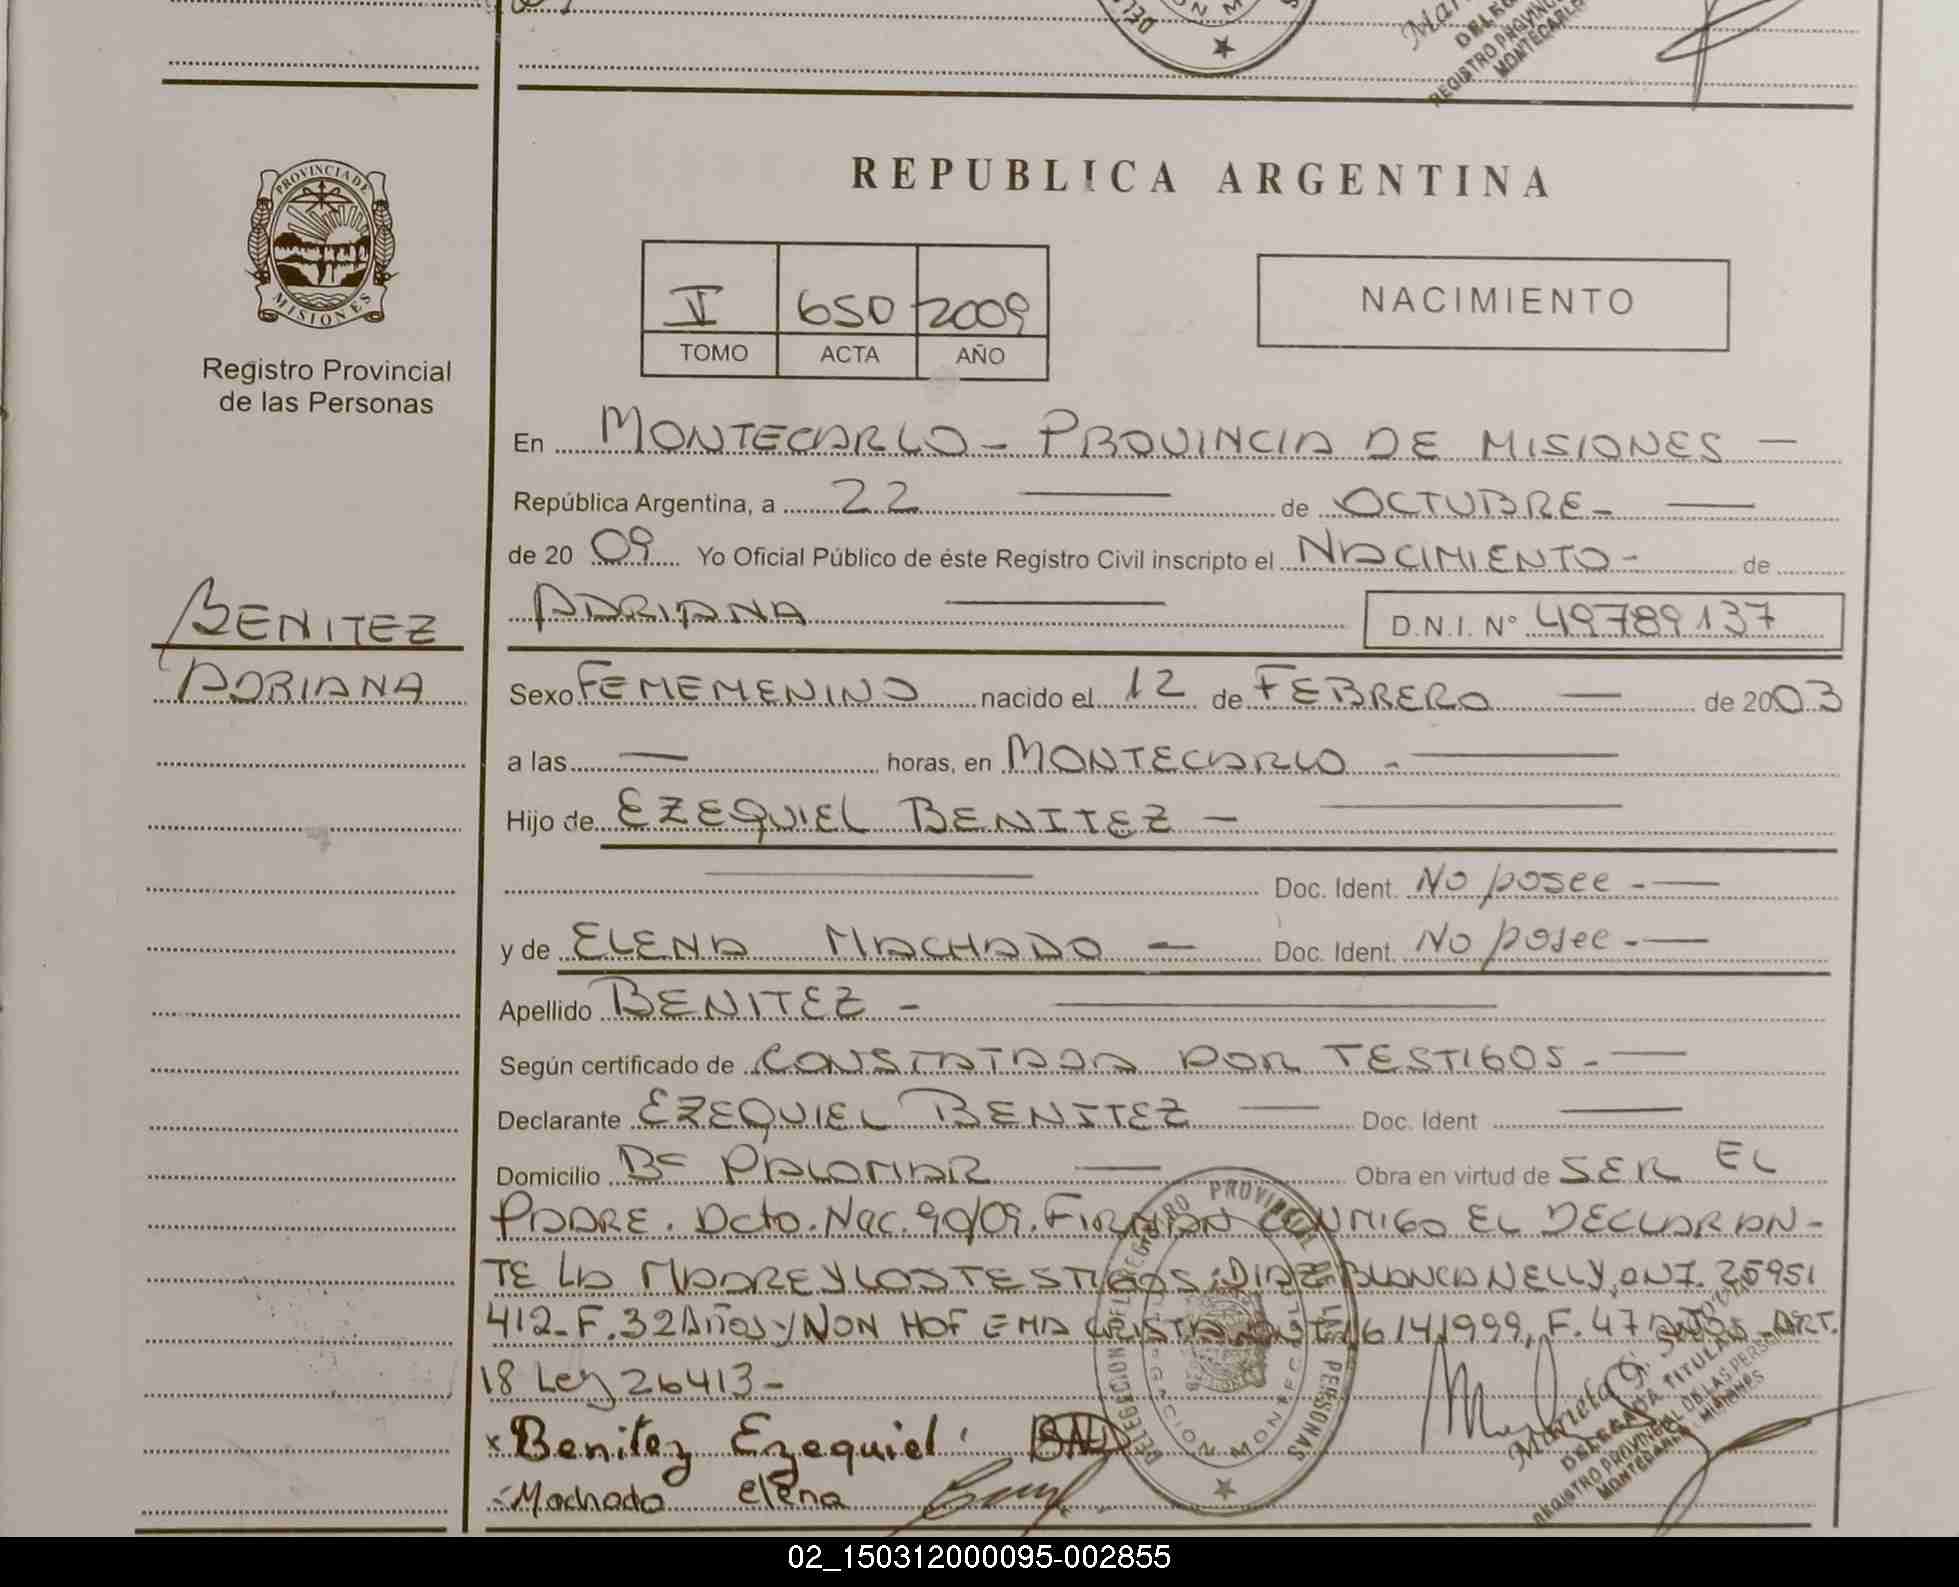 DELE
REGISTRO PROVINC
MONTECARLO
PROVINCIA DE
MISIONES
Registro Provincial
de las Personas
REPUBLICA ARGENTINA
V 650 2009
TOMO ACTA AÑO
NACIMIENTO
En MONTECARLO - PROVINCIA DE MISIONES —
República Argentina, a 22 — de OCTUBRE - —
de 20 09 Yo Oficial Público de éste Registro Civil inscripto el NACIMIENTO - de
BENITEZ
ADRIANA
ADRIANA — D.N.I. N° 49789137
Sexo FEMEMENINO nacido el 12 de FEBRERO — de 2003
a las — horas, en MONTECARLO - —
Hijo de EZEQUIEL BENITEZ — —
— Doc. Ident. No posee - —
y de ELENA MACHADO — Doc. Ident. No posee - —
Apellido BENITEZ - —
Según certificado de CONSTATADA POR TESTIGOS - —
Declarante EZEQUIEL BENITEZ — Doc. Ident —
Domicilio Bº PALOMAR — Obra en virtud de SER EL
PADRE. Dcto. Nac. 90/09. FIRMAN CONMIGO EL DECLARAN-
TE LA MADRE Y LOS TESTIGOS: DIAZ BLANCA NELLY, DNI. 25951
412 - F. 32 Años y NON HOF EMA 16141999, F. 47 AÑOS. ART.
18 Ley 26413 -
x Benitez Ezequiel
Machado elena
DELEGACION DEL REGISTRO PROVINCIAL DE LAS PERSONAS
Marieta G.
DELEGADA TITULAR
REGISTRO PROVINCIAL DE LAS PERSONAS
MONTECARLO MISIONES
02_150312000095-002855